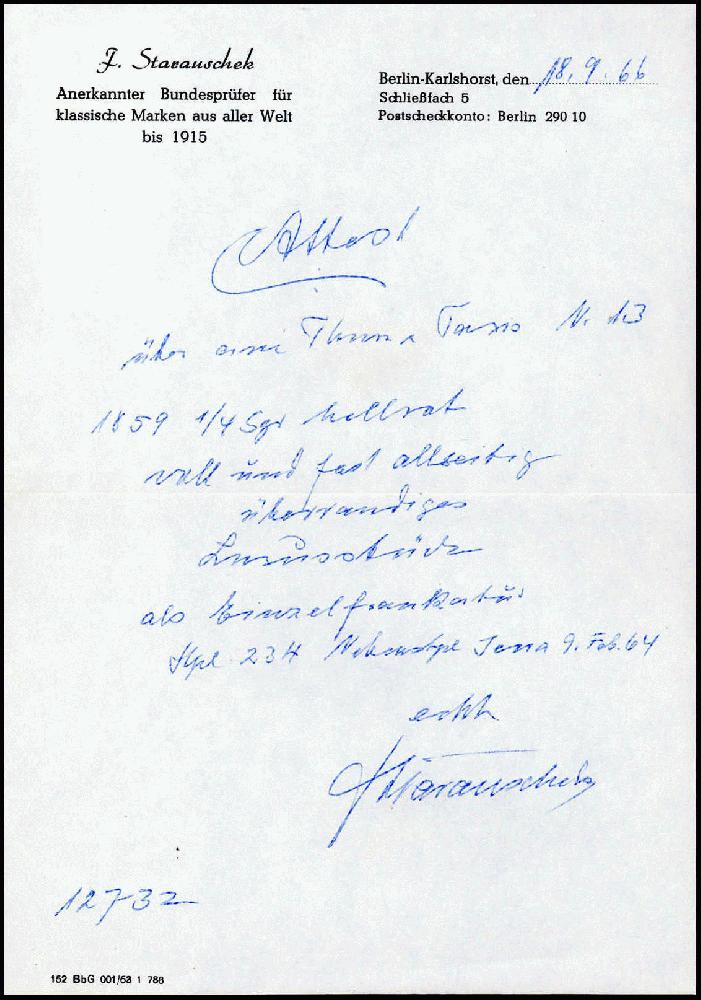 J. Starauschek
Anerkannter Bundesprüfer für
klassische Marken aus aller Welt
bis 1915
Berlin-Karlshorst, den 18.9.66
Schließfach 5
Postscheckkonto: Berlin 290 10
Attest
über eine Thurn x Taxis N. 13
1859 1/4 Sgr hellrot
voll und fast allseitig
überrandiges
Luxusstück
als Einzelfrankatur
Stpl 234 Nebenstpl Jena 9. Feb. 64
echt
Starauschek
12732
152 BbG 001/53 1 788